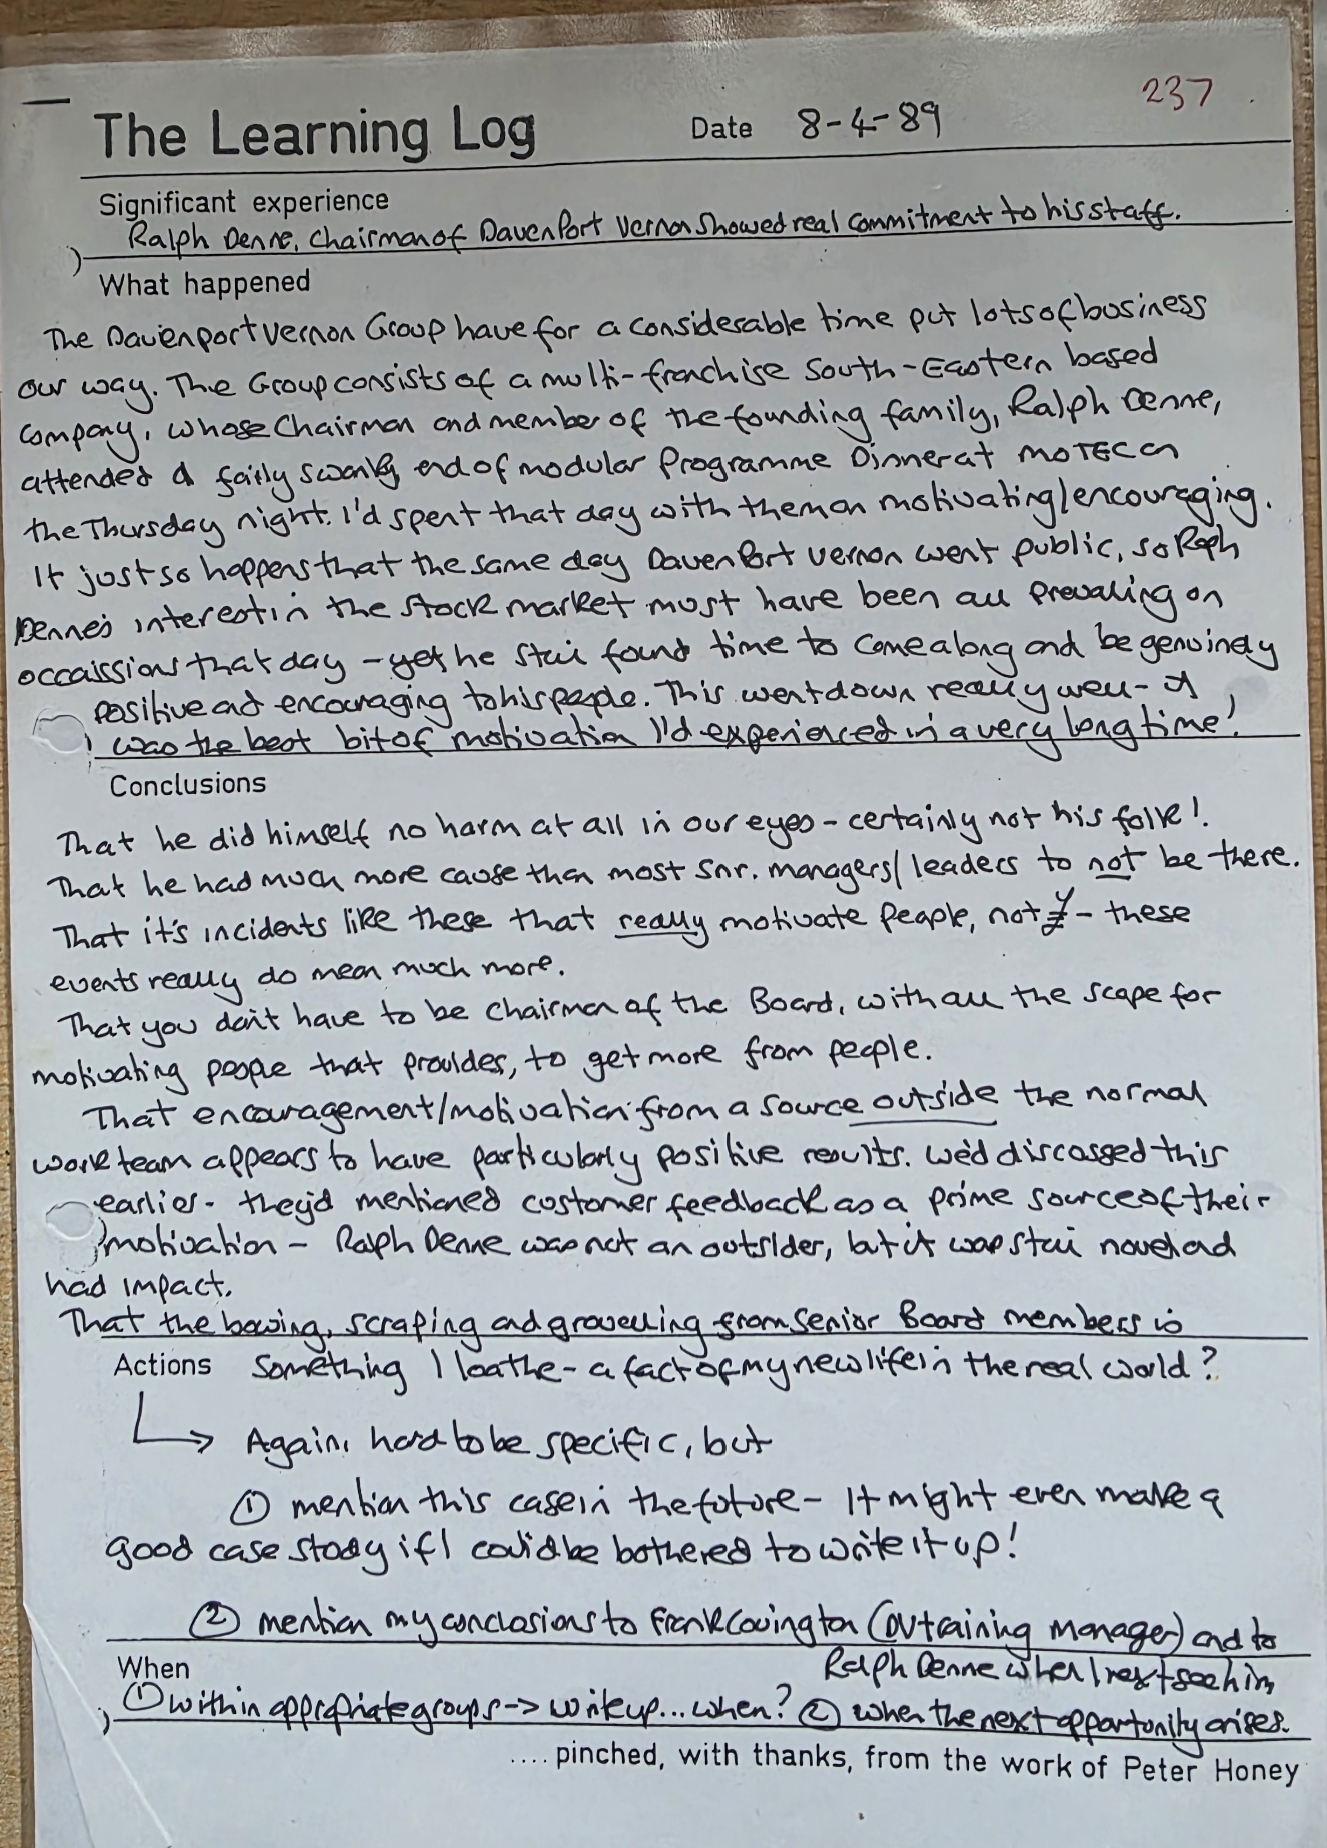 237
The Learning Log Date 8-4-89
Significant experience
Ralph Denne, Chairman of Davenport Vernon showed real commitment to his staff.
What happened
The Davenport Vernon Group have for a considerable time put lots of business
our way. The Group consists of a multi-franchise South-Eastern based
company, whose Chairman and member of the founding family, Ralph Denne,
attended a fairly swanky end of modular programme Dinner at MOTEC on
the Thursday night. I'd spent that day with them on motivating/encouraging.
It just so happens that the same day Davenport Vernon went public, so Raph
Denne's interest in the stock market must have been all prevailing on
occaissions that day - yet he still found time to come along and be genuinely
positive and encouraging to his people. This went down really well - it
was the best bit of motivation I'd experienced in a very long time!
Conclusions
That he did himself no harm at all in our eyes - certainly not his folk!
That he had much more cause than most snr. managers/leaders to not be there.
That it's incidents like these that really motivate people, not £ - these
events really do mean much more.
That you don't have to be chairman of the Board, with all the scope for
motivating people that provides, to get more from people.
That encouragement/motivation from a source outside the normal
work team appears to have particularly positive results. We'd discussed this
earlier - they'd mentioned customer feedback as a prime source of their
motivation - Ralph Denne was not an outsider, but it was still novel and
had impact.
That the bowing, scraping and grovelling from senior Board members is
Actions something I loathe - a fact of my new life in the real world?
Again, hard to be specific, but
① mention this case in the future - It might even make a
good case study if I could be bothered to write it up!
② mention my conclusions to Frank Covington (DV training manager) and to
Ralph Denne when I next see him
When
① within appropriate groups -> write up... when? ② when the next opportunity arises.
.... pinched, with thanks, from the work of Peter Honey